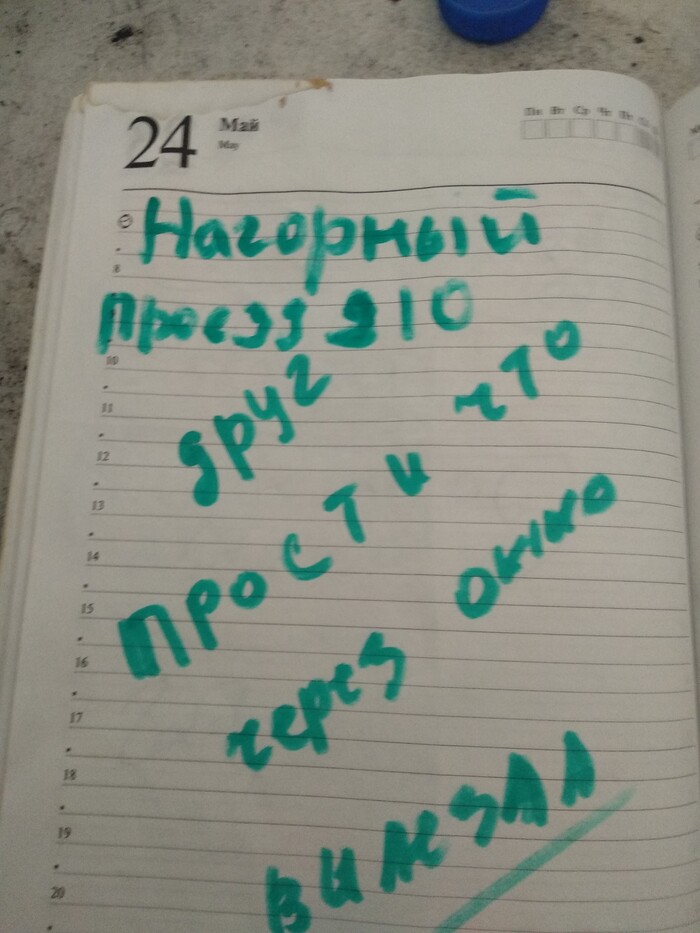 24 Май
May
Пн Вт Ср Чт Пт
Нагорный
8
проезд д 10
10
друг
11
прости что
12
13
14
15
через окно
16
17
вилезал
18
19
20